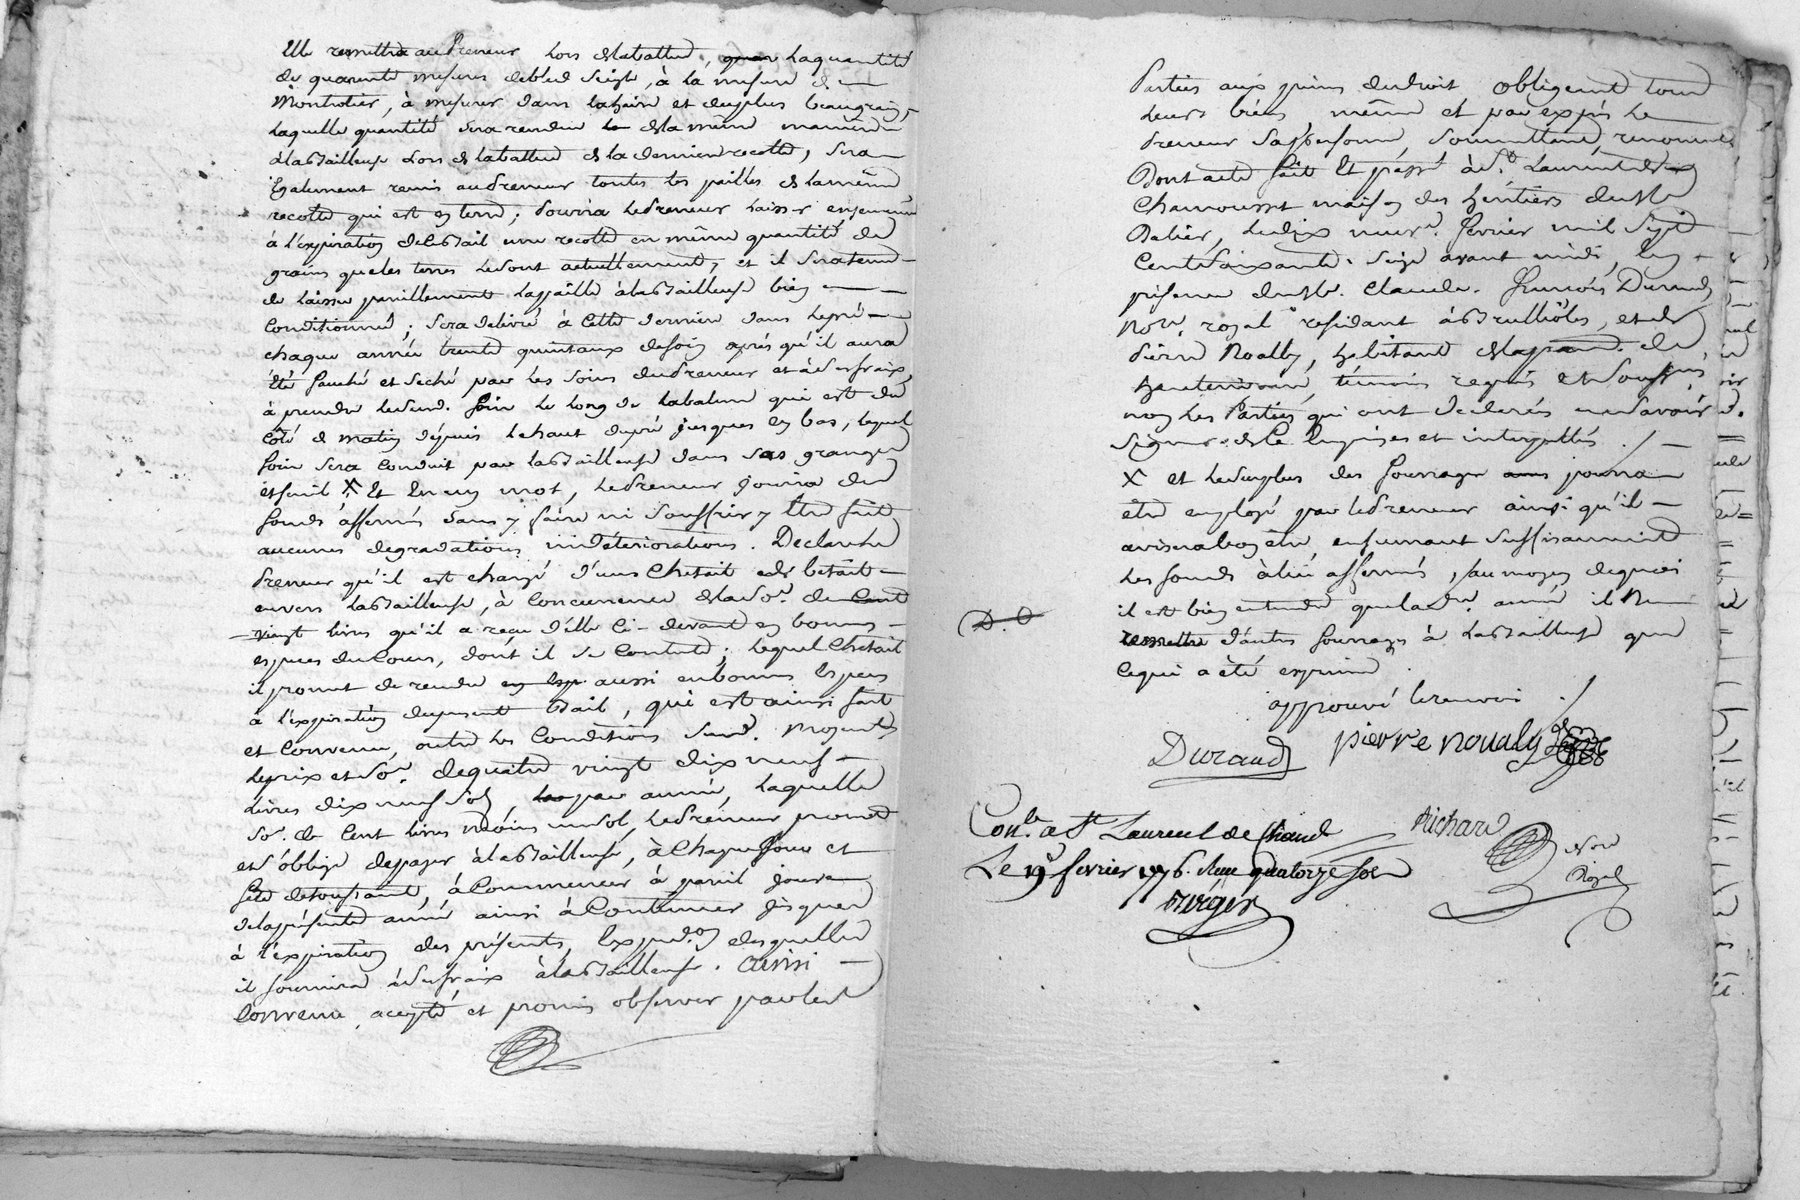 Elle remettra au Preneur lors de la battue, la quantité
de quarente mesures de bled seigle, à la mesure de
Montrotier, à mesurer dans et du plus beau grain,
laquelle quantité sera rendue de la même manière
à la Bailleuse lors de la battue de la derniere recolte, sera
Egalement remis au Preneur toutes les pailles de la même
recolte qui est en terre; Pourra le Preneur laisser ensemencé
à l'expiration de ce Bail une recolte en même quantité de
grains que les terres le sont actuellement, et il sera tenu
de laisser pareillement la paille à la Bailleuse bien
Conditionné; sera delivré à cette derniere dans le pré
chaque année trente quintaux de foin après qu'il aura
été fauché et seché par les soins du Preneur et à ses fraix,
à prendre led. foin le long de la balme qui est du
côté de matin depuis le haut du pré jusques en bas, lequel
foin sera conduit par la Bailleuse dans sa grange
et fenil X. Et en un mot, le Preneur jouira des
fonds affermés sans y faire ni souffrir y être fait
aucunes degradations ni deteriorations. Declare le
Preneur qu'il est chargé d'une Chetail de betail
envers la Bailleuse, à concurrence de la so.e de Cent
vingt livres qu'il a reçu d'elle ci-devant en bonnes
espèces du Cours, dont il se contente; lequel Chetail
il promet de rendre aussi en bonnes Especes
à l'expiration du present Bail, qui est ainsi fait
et convenu, outre les conditions susd. moyennant
le prix et so.e de quatre vingt dix neuf
livres dix neuf sols, par année, laquelle
so.e de Cent livres moins un sol, le Preneur promet
et s'oblige de payer à la Bailleuse, à chaque jour et
fête de Toussaint, à commencer à pareil jour
de la presente année ainsi à continuer jusques
à l'expiration des présentes, Exped.on desquelles
il fournira à ses fraix à la Bailleuse. Ainsi
Convenu accepté et promis observer par les
Parties aux peines de droit obligeant tous
leurs biens, même et par exprès le
Preneur sa Personne, soumettant, renonceant
Dont acte fait Et passé à St. Laurent de
Chamousset maison des héritiers de M.e
Balier, le dix neuf.e fevrier mil sept
Cent soixante seize avant midi, En
présence de M.e Claude François Durand
No.re royal résidant à Brulliolles, et de
Pierre Noally, habitant de la de
Hauterivoire, témoins requis et soussignés,
non les Parties qui ont declarés ne savoir
signer de ce Enquises et interpellés ./
X et le surplus des fourrages pourra
être employé par le Preneur ainsi qu'il
avisera bon être, en fumant suffisamment
les fonds à lui affermés, au moyen de quoi
il est bien entendu que la der.e année il ne
remettra d'autres fourrages à la Bailleuse que
ce qui a été exprimé.
approuvé le renvoi ./
Durand pierre noualy
Richard
No.re
Royal
Con.lé a St Laurent de Cham.t
Le 19 fevrier 1776. Reçu quatorze sols